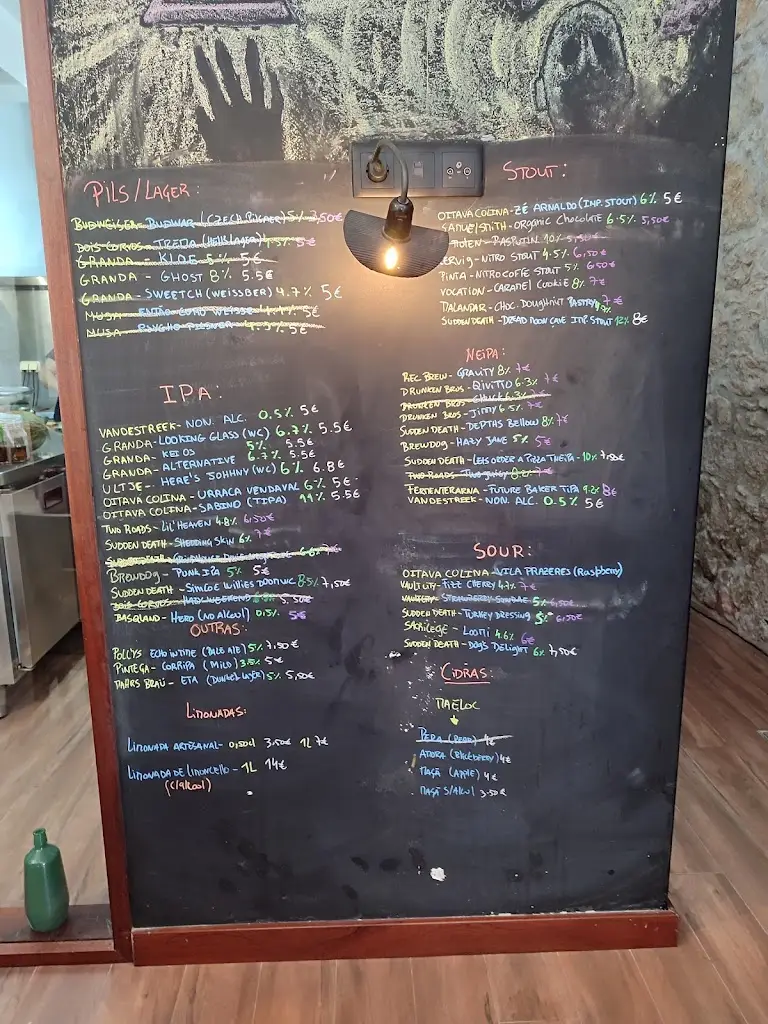 PILS/LAGER:
BUDWEISER BUDWAR (CZECH PILSNER) 5% 3,50€
DOIS CORVOS - (HELLS LAGER) 4,5% 5€
GRANDA - 5% 5€
GRANDA - GHOST 8% 5.5€
GRANDA - SWEETCH (WEISSBER) 4.7% 5€
MUSA - 5€
MUSA - PSYCHO PILSNER 5€
IPA:
VANDESTREEK - NON. ALC. 0.5% 5€
GRANDA - LOOKING GLASS (WC) 6.7% 5.5€
GRANDA - KEIOS 5% 5.5€
GRANDA - ALTERNATIVE 6.7% 5.5€
ULTJE - HERE'S JOHNNY (WC) 6% 6.8€
OITAVA COLINA - URRACA VENDAVAL 6% 5€
OITAVA COLINA - SABINO (TIPA) 11% 5.5€
TWO ROADS - LIL'HEAVEN 4.8% 6,50€
SUDDEN DEATH - SHEDDING SKIN 6% 7€
SUDDEN DEATH - 7€
BREWDOG - PUNK IPA 5% 5€
SUDDEN DEATH - SIMCOE WILLIES DDH WC 8.5% 7,50€
DOIS CORVOS - HAZY WEEKEND 5.50€
BASQUELAND - HERO (NO ALCOOL) 0,5% 5€
OUTRAS:
POLLYS ECHO IN TIME (PALE ALE) 5% 7,50€
PINTEGA - CORRIPA (MILD) 3.5% 5€
MAHRS BRAU - ETA (DUNKEL LAGER) 5% 5,50€
LIMONADAS:
LIMONADA ARTESANAL - 0,50cl 3.50€ 1L 7€
LIMONADA DE LIMONCELLO - 1L 14€
(C/ALKOOL)
STOUT:
OITAVA COLINA - ZÉ ARNALDO (IMP. STOUT) 6% 5€
SAMUEL SMITH - ORGANIC CHOCOLATE 6.5% 5,50€
MOLEN - RASPUTIN 10% 5,50€
LERVIG - NITRO STOUT 4.5% 6,50€
PINTA - NITRO COFFE STOUT 5% 6,50€
VOCATION - CARAMEL COOKIE 8% 7€
TALANDAR - CHOC. DOUGHNUT PASTRY 7€
SUDDEN DEATH - DREAD MOON CAVE IMP. STOUT 12% 8€
NEIPA:
REC BREW - GRAVITY 8% 7€
DRUNKEN BROS - QIVITTO 6.3% 7€
DRUNKEN BROS - CHUCK 6.3% 7€
DRUNKEN BROS - JIMMY 6.5% 7€
SUDDEN DEATH - DEPTHS BELLOW 8% 7€
BREWDOG - HAZY JANE 5% 5€
SUDDEN DEATH - LETS ORDER A PIZZA THEIPA - 10% 7,50€
TWO ROADS - TWO JUICY 8.2% 7€
FERTENTERARNA - FUTURE BAKER TIPA 9.2% 8€
VANDESTREEK - NON. ALC. 0.5% 5€
SOUR:
OITAVA COLINA - VILA PRAZERES (Raspberry)
VAULT CITY - FIZZ CHERRY 4.7% 7€
VAULT CITY - STRAWBERRY SUNDAE 5% 6,50€
SUDDEN DEATH - TURKEY DRESSING 5% 6,50€
SACRILEGE - LOOMI 4.6% 6€
SUDDEN DEATH - DOG'S DELIGHT 6% 7,50€
CIDRAS:
MAELOC
PERA (PEAR) 4€
AMORA (BLACKBERRY) 4€
MAÇÃ (APPLE) 4€
MAÇÃ S/ALCOOL 3.50€